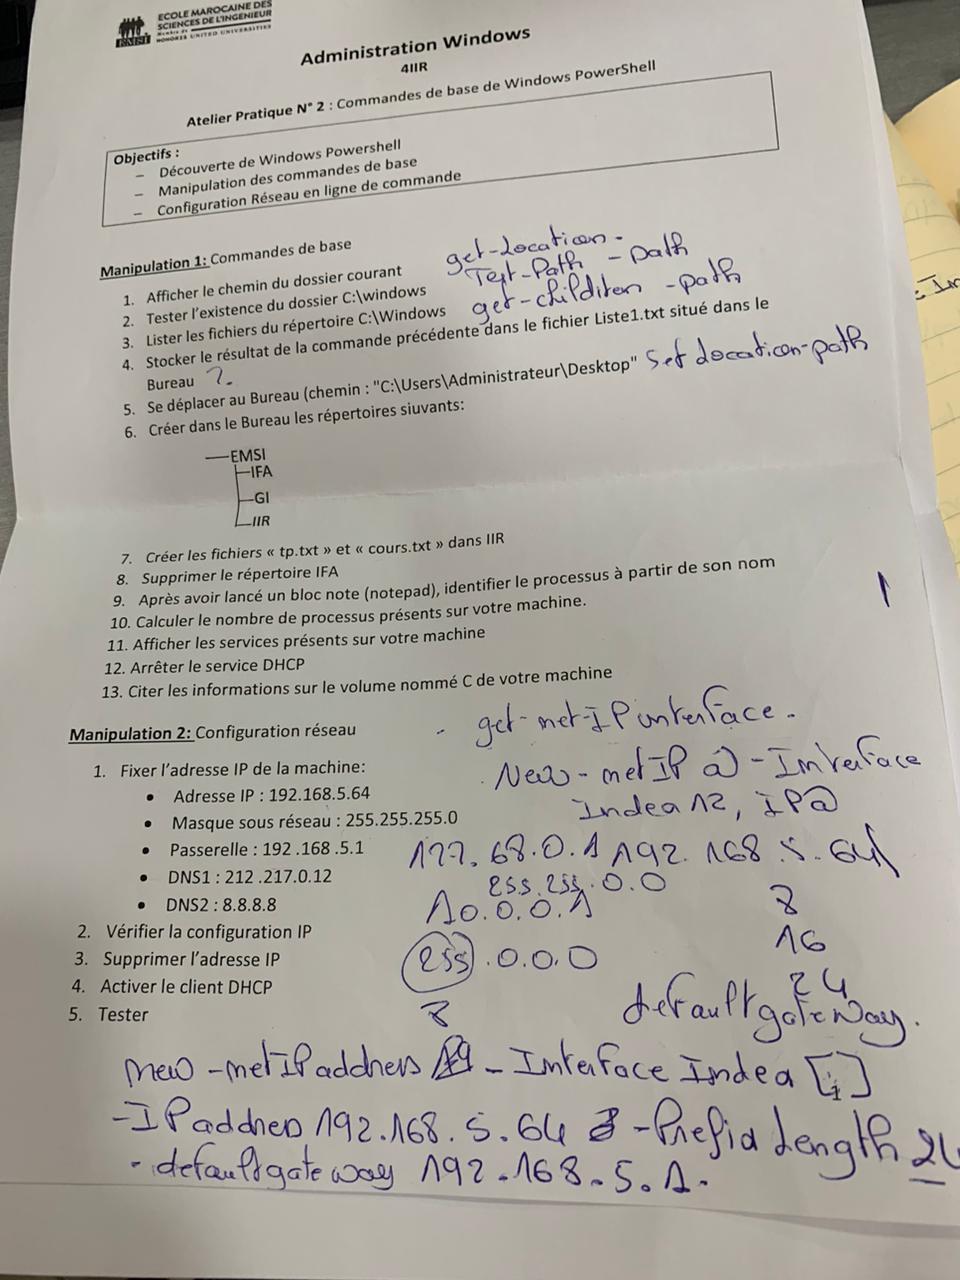 ECOLE MAROCAINE DES
SCIENCES DE L'INGENIEUR
Membre de
HONORIS UNITED UNIVERSITIES
EMSI
Administration Windows
4IIR
Atelier Pratique N° 2 : Commandes de base de Windows PowerShell
Objectifs :
– Découverte de Windows Powershell
– Manipulation des commandes de base
– Configuration Réseau en ligne de commande
Manipulation 1: Commandes de base
get-location-
1. Afficher le chemin du dossier courant
Test-Path - path
2. Tester l'existence du dossier C:\windows
get-childiten -path
3. Lister les fichiers du répertoire C:\Windows
4. Stocker le résultat de la commande précédente dans le fichier Liste1.txt situé dans le
Bureau ?.
5. Se déplacer au Bureau (chemin : "C:\Users\Administrateur\Desktop" Set location-path
6. Créer dans le Bureau les répertoires siuvants:
EMSI
IFA
GI
IIR
7. Créer les fichiers « tp.txt » et « cours.txt » dans IIR
8. Supprimer le répertoire IFA
9. Après avoir lancé un bloc note (notepad), identifier le processus à partir de son nom
10. Calculer le nombre de processus présents sur votre machine.
11. Afficher les services présents sur votre machine
12. Arrêter le service DHCP
13. Citer les informations sur le volume nommé C de votre machine
get-net-IPinterface.
Manipulation 2: Configuration réseau
New-netIP @ - Interface
Index 12, IP@
1. Fixer l'adresse IP de la machine:
• Adresse IP : 192.168.5.64
• Masque sous réseau : 255.255.255.0
• Passerelle : 192 .168 .5.1
177.68.0.1 192.168.5.64
255.255.0.0
• DNS1 : 212 .217.0.12
10.0.0.1 8
• DNS2 : 8.8.8.8
16
2. Vérifier la configuration IP
255.0.0.0
3. Supprimer l'adresse IP
24
4. Activer le client DHCP
defaultgateway.
5. Tester
8
new-netIPaddress - Interface Index [i]
-IPaddress 192.168.5.64 -Prefix Length 24
- defaultgateway 192.168.5.1.